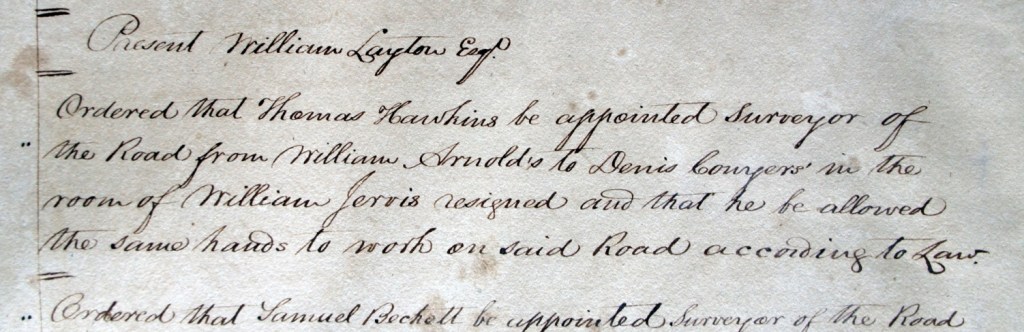 Present William Layton Esqr.
Ordered that Thomas Hawkins be appointed Surveyor of
the Road from William Arnold's to Denis Conyers' in the
room of William Jervis resigned and that he be allowed
the same hands to work on said Road according to Law.
Ordered that Samuel Beckett be appointed Surveyor of the Road